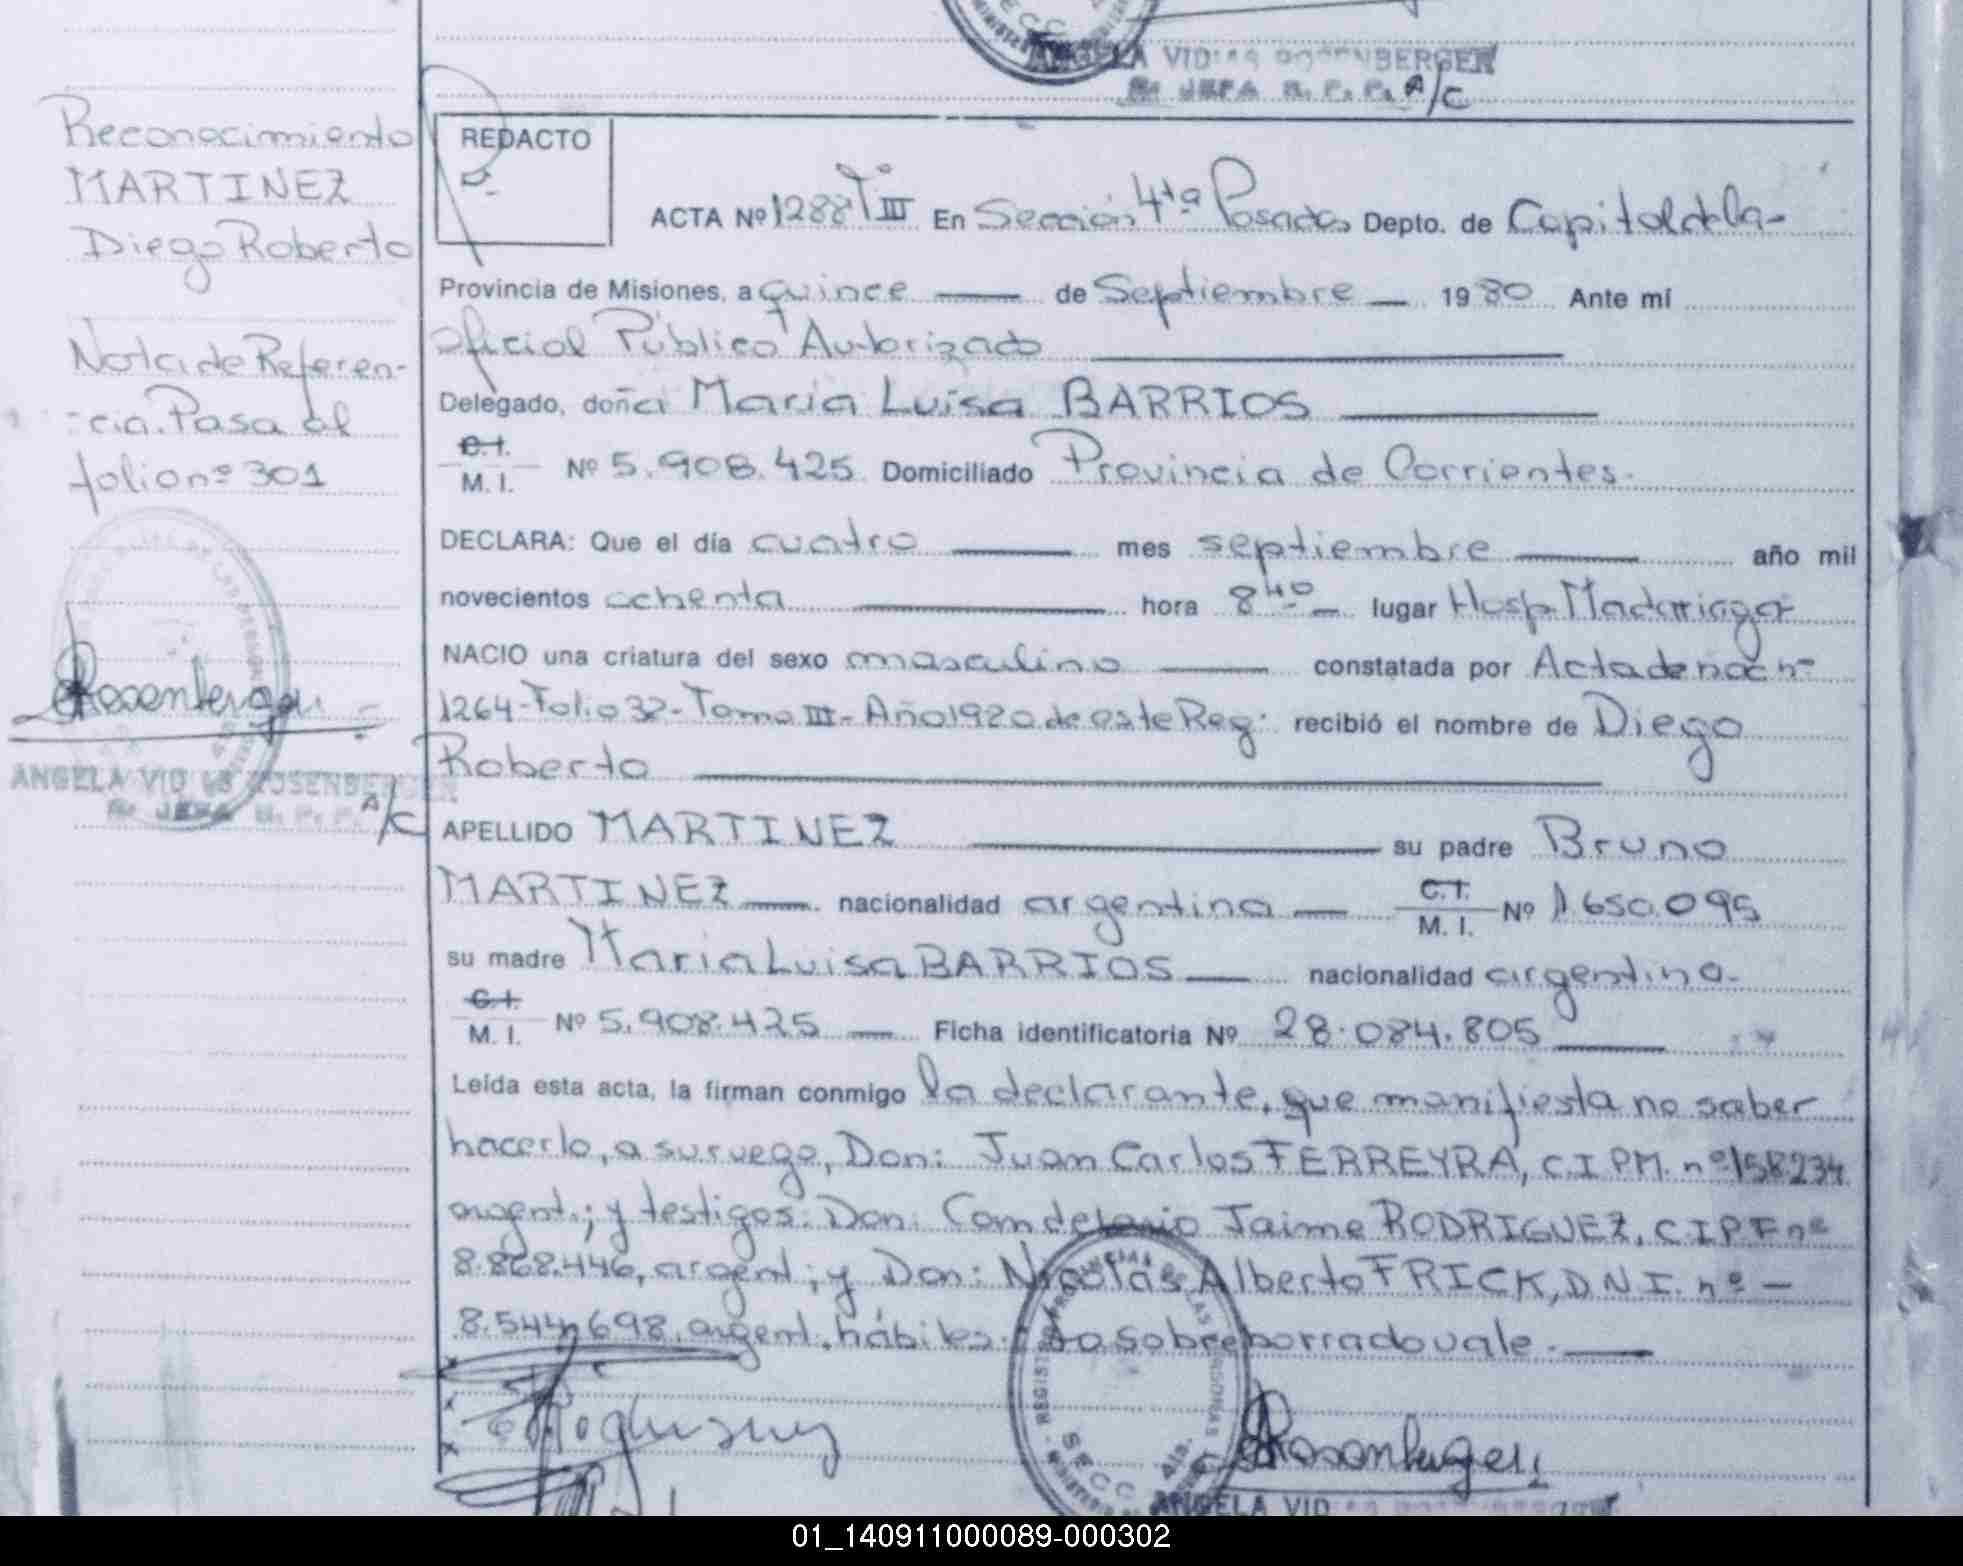 ANGELA VID ROSENBERGER
JEFA R. P. P. A/C
Reconocimiento
MARTINEZ
Diego Roberto
Nota de Referen-
-cia. Pasa al
folio nº 301
Rosenberger
ANGELA VID ROSENBERGER
JEFA R. P. P. A/C
REDACTO
ACTA Nº 1288 Tº III En Sección 4ta Posadas Depto. de Capital de la-
Provincia de Misiones, a quince de Septiembre 1980 Ante mí
Oficial Público Autorizado
Delegado, doña Maria Luisa BARRIOS
C.I.
M. I. Nº 5.908.425 Domiciliado Provincia de Corrientes.
DECLARA: Que el día cuatro mes septiembre año mil
novecientos ochenta hora 8 40 lugar Hosp. Madariaga
NACIO una criatura del sexo masculino constatada por Acta de nac nº
1264-Folio 32-Tomo III-Año 1980 de este Reg: recibió el nombre de Diego
Roberto
APELLIDO MARTINEZ su padre Bruno
MARTINEZ nacionalidad argentina C.I.
M. I. Nº 1.650.095
su madre Maria Luisa BARRIOS nacionalidad argentina.
C.I.
M. I. Nº 5.908.425 Ficha identificatoria Nº 28.084.805
Leída esta acta, la firman conmigo la declarante, que manifiesta no saber
hacerlo, a su ruego, Don: Juan Carlos FERREYRA, C I P M. nº 158234
argent.; y testigos: Don: Candelario Jaime RODRIGUEZ, C.I.P.F nº
8.868.446, argent.; y Don: Nicolás Alberto FRICK, D.N.I. nº -
8.544.698, argent. hábiles. sobreborrado vale.
Rosenberger
ANGELA VID
SECC 4ta.
01_140911000089-000302